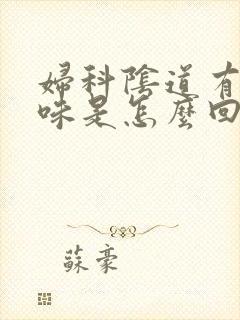 婦科陰道有
味是怎麼回
蘇豪